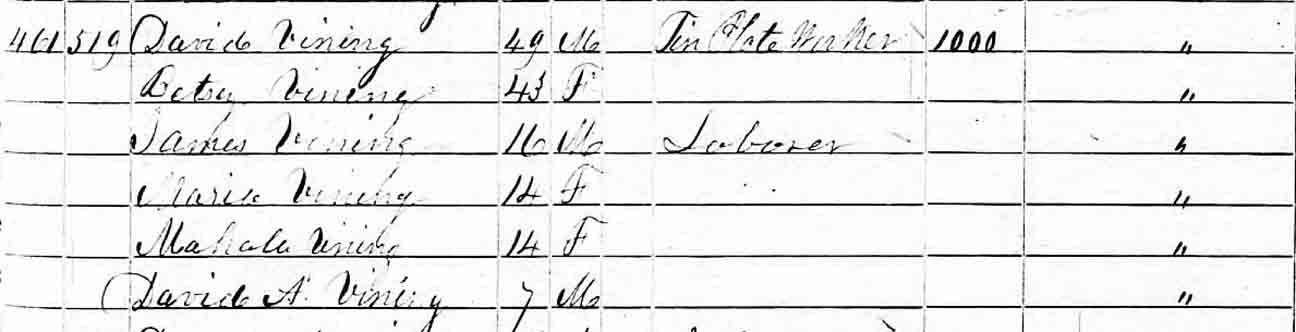 461 519 David Vining 49 M Tin Plate Worker 1000 "
Betsy Vining 43 F "
James Vining 16 M Laborer "
Maria Vining 14 F "
Mahala Vining 14 F "
David A. Vining 7 M "